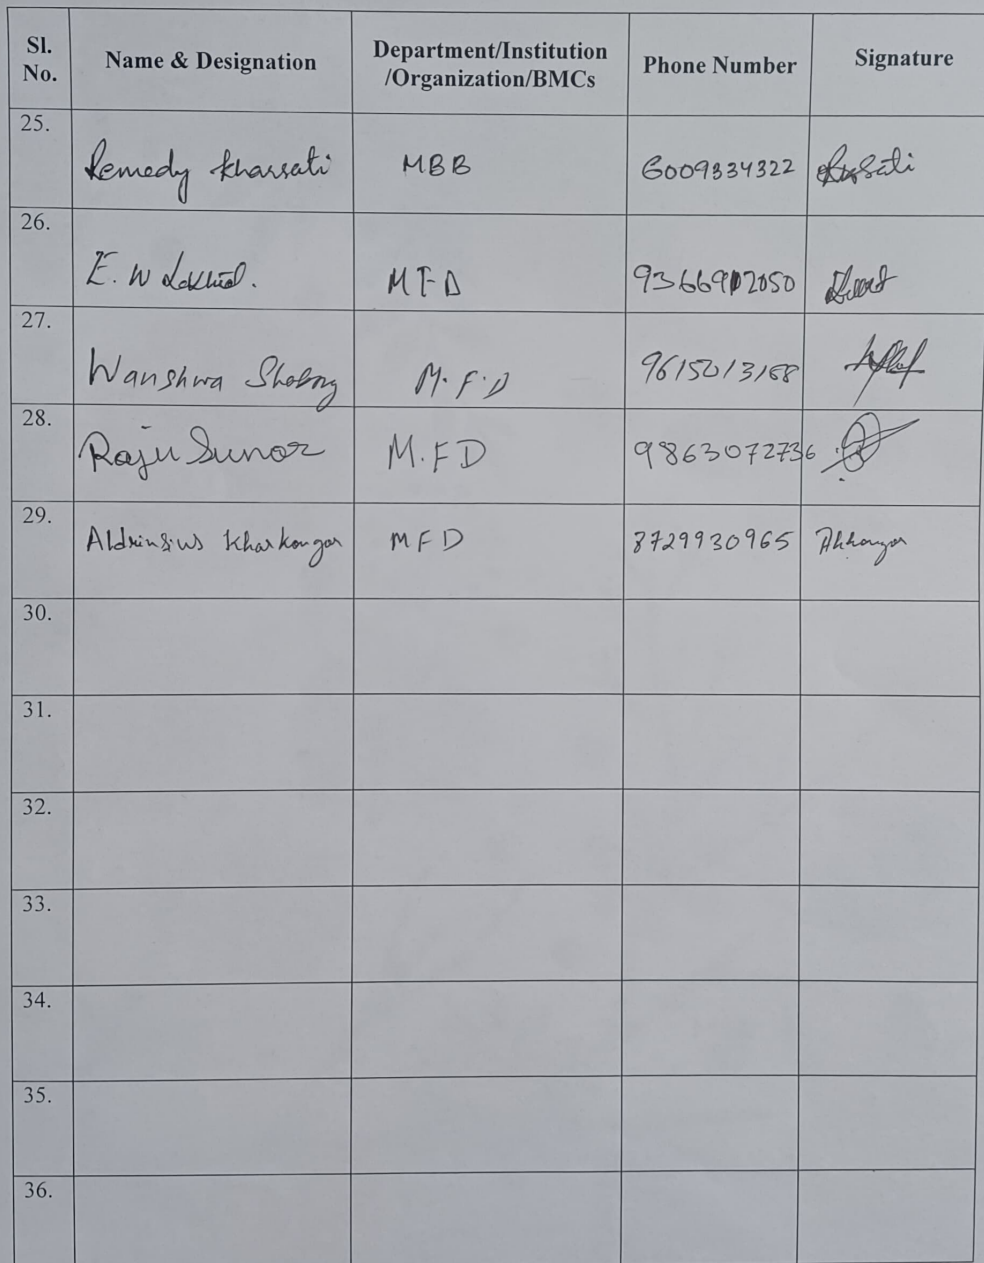 Sl. No. Name & Designation Department/Institution /Organization/BMCs Phone Number Signature
25. Remedy Kharsati MBB 6009334322
26. E. W MFD
27. Wanshwa M.F.D 9615013168
28. Raju Sunar M.FD 9863072736
29. Kharkongor MFD 8729930965
30.
31.
32.
33.
34.
35.
36.